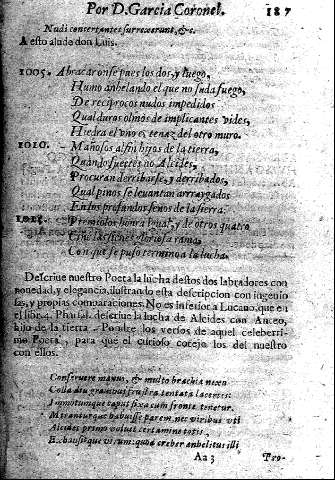 Por D. Garcia Coronel. 187
Nudi concertantes surrexerunt, &c.
A esto alude don Luis.
1005. Abraçaronse pues los dos, y luego,
Humo anhelando el que no suda fuego,
De reciprocos nudos impedidos
Qual duros olmos de implicantes vides,
Hiedra el vno es tenaz del otro muro.
1010. Mañosos al fin hijos de la tierra,
Quando fuertes no Alcides,
Procuran derribarse, y derribados,
Qual pinos se leuantan arraygados
En los profundos senos de la sierra.
1015. Premio los honra igual, y de otros quatro
Ciñe las sienes gloriosa rama,
Con que se puso termino a la lucha.
Descriue nuestro Poeta la lucha destos dos labradores con
nouedad, y elegancia, ilustrando esta descripcion con ingenio
sas, y propias comparaciones. No es inferior a Lucano, que en
el libr. 4. Phars. descriue la lucha de Alcides con Anteo,
hijo de la tierra. Pondre los versos de aquel celeberri-
mo Poeta, para que el curioso coteje los del nuestro
con ellos.
Conseruere manus, & multo brachia nexu
Colla diu grauibus frustra tentata lacertis:
Immotumque caput fixa cum fronte tenetur.
Miranturque habuisse parem. nec viribus vti
Alcides primo voluit certamine totis,
Exhausitque virum: quod creber anhelitus illi
Aa 3 Pro-